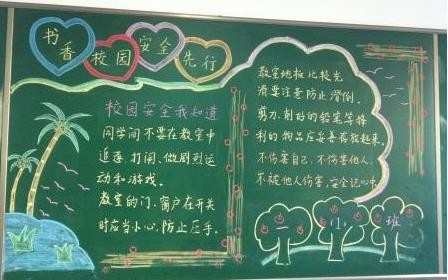 书香 校园 安全 先行
校园安全我知道
同学间不要在教室中
追逐、打闹、做剧烈运
动和游戏。
教室的门、窗户在开关
时应当小心,防止压手。
教室地板比较光
滑要注意防止滑倒。
剪刀、削好的铅笔等锋
利的物品应妥善存放起来。
不伤害自己,不伤害他人,
不被他人伤害,安全记心中
一 小 班